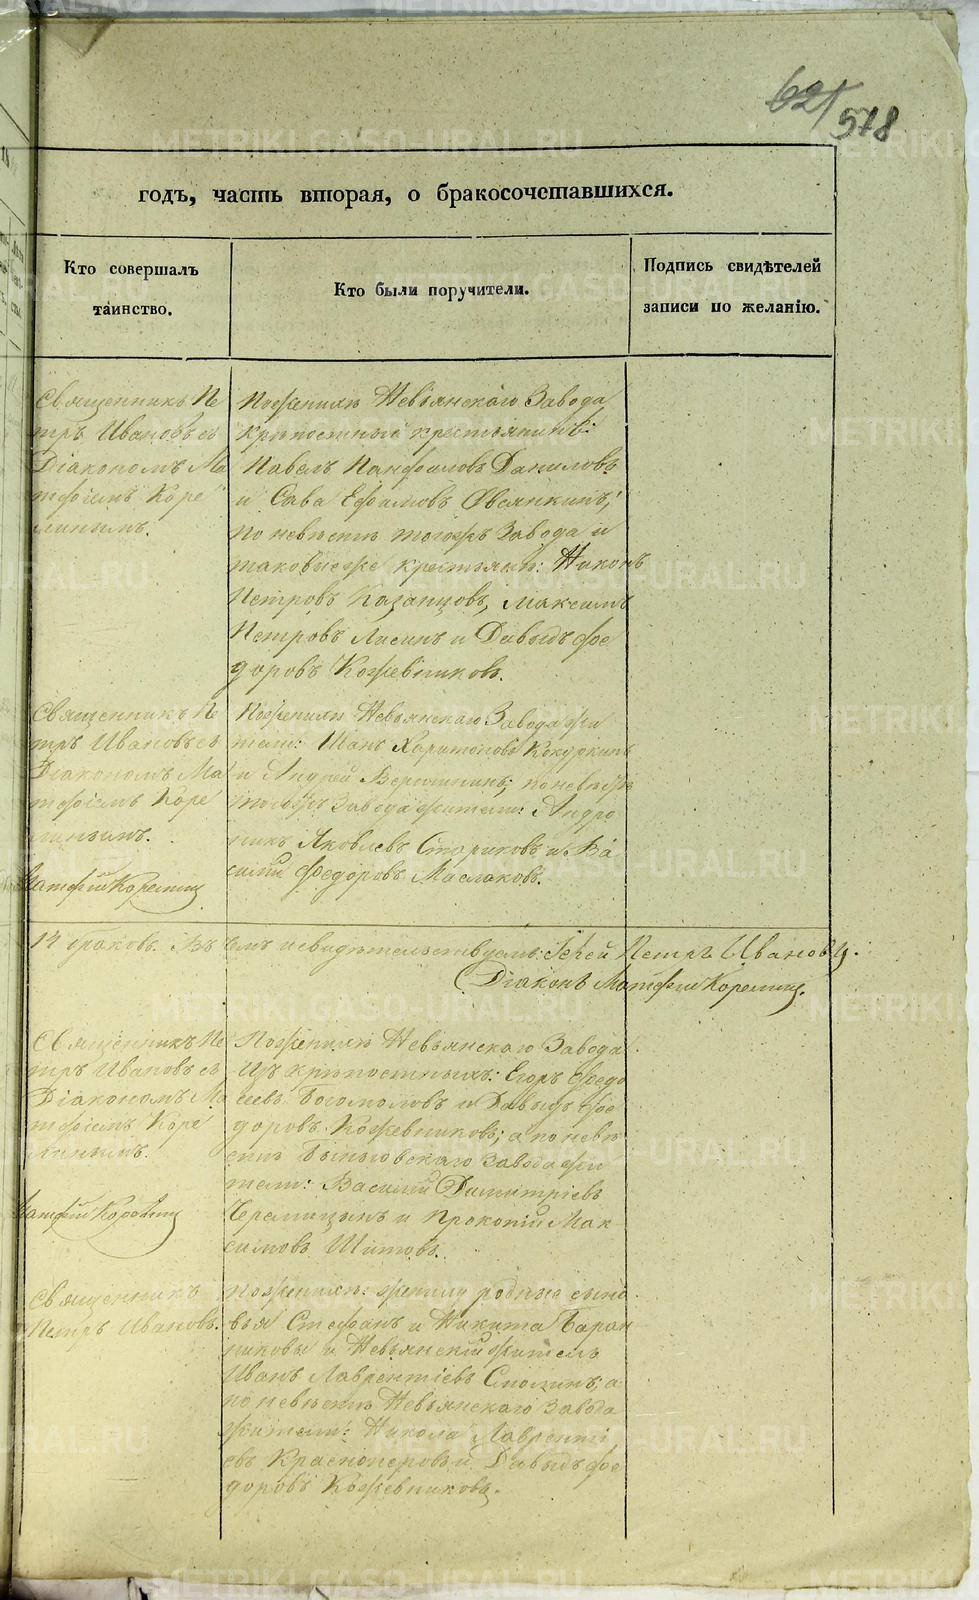 621
578
годъ, часть вторая, о бракосочетавшихся.
Кто совершалъ
таинство.
Кто были поручители.
Подпись свидѣтелей
записи по желанію.
Священникъ Пе
тръ Ивановъ съ
Діакономъ Ма
тфіемъ Коре
линымъ.
По женихѣ Невьянскаго Завода
крѣпостныя крестьянинъ:
Павелъ Панфиловъ Даниловъ
и Сава Ефимовъ Овсянкинъ;
по невѣстѣ тогожъ Завода и
таковыеже крестьяне: Никонъ
Петровъ Казанцовъ, Максимъ
Петровъ Лисинъ и Давыдъ Фе
доровъ Кожевниковъ.
Священникъ Пе
тръ Ивановъ съ
Діакономъ Ма
тфіемъ Коре
линымъ.
Матфій Корелинъ
По женихѣ Невьянскаго Завода жи
тели: Иванъ Харитоновъ Кокуркинъ
и Андрей Вершининъ; по невѣстѣ
тогожъ Завода жители: Андро
никъ Яковлевъ Стариковъ и Ва
силій Федоровъ Маслаковъ.
14 браковъ. Въ чемъ и свидѣтельствуемъ: Іерей Петръ Ивановъ.
Діаконъ Матфій Корелинъ.
Священникъ Пе
тръ Ивановъ съ
Діакономъ Ма
тфіемъ Коре
линымъ.
Матфій Корелинъ
По женихѣ Невьянскаго Завода
изъ крѣпостныхъ: Егоръ Федо
сеевъ Богомоловъ и Давыдъ Фе
доровъ Кожевниковъ; а по невѣ
стѣ Быньговскаго Завода жи
тели: Василій Димитріевъ
Черемицынъ и Прокопій Мак
симовъ Шитовъ.
Священникъ
Петръ Ивановъ.
По женихѣ: жениху родные сыно
вья Стефанъ и Никита Баран
никовы и Невьянскій житель
Иванъ Лаврентіевъ; а
по невѣстѣ Невьянскаго Завода
жители: Никола Лавренті
евъ Красноперовъ и Давыдъ Фе
доровъ Кожевниковъ.
METRIKI.GASO-URAL.RU